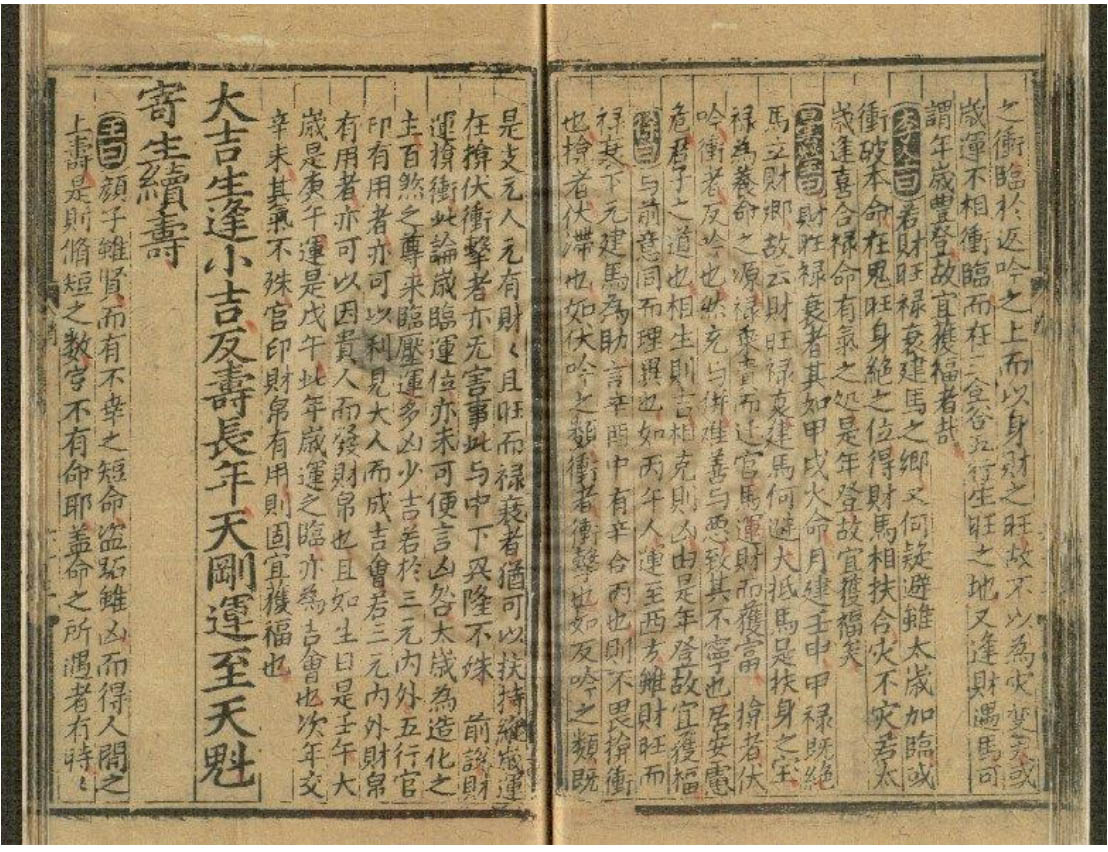 之衝臨於返吟之上而以身財之旺故不以為灾变矣或
歳運不相衝臨而在三合谷五行生旺之地又逢財遇馬可
謂年歳豊登故宜獲福者哉
李仝曰若財旺禄衰建馬之郷又何疑避雖太歳加臨或
衝破本命在鬼旺身絶之位得財馬相扶合灾不灾若太
歳逢喜合禄命有氣之処是年登故宜獲福矣
曇瑩曰財旺禄衰者其如甲戌火命月建壬申甲禄既絶
馬立財郷故云財旺禄衰建馬何避大抵馬是扶身之宝
禄為養命之源禄乘書而迁官馬運財而獲富揜者伏
吟衝者反吟也然充与併雄善与悪致其不寧也居安慮
危君子之道也相生則吉相克則凶由是年登故宜獲福
疎曰与前意同而理異也如丙午人運至西方雖財旺而
禄衰下元建馬為助言辛酉中有辛合丙也則不畏揜衝
也揜者伏滞也如伏吟之類衝者衝擊也如反吟之類既
是支元人元有財〻且旺而禄衰者猶可以扶持雖歳運
在揜伏衝擊者亦无害事此与中下兴隆不殊 前談財
運揜衝此論歳臨運位亦未可便言凶咎大歳為造化之
主百煞之尊来臨壓運多凶少吉若於三元内外五行官
印有用者亦可以利見大人而成吉會若三元内外財帛
有用者亦可以因貴人而發財帛也且如生日是壬午大
歳是庚午運是戊午此年歳運之臨亦為吉會也次年交
辛未其氣不殊官印財帛有用則固宜獲福也
大吉生逢小吉反壽長年天剛運至天魁
寄生續壽
王曰顔子雖賢而有不幸之短命盗跖雖凶而得人間之
上壽是則脩短之数、豈不有命耶盖命之所遇者有時〻